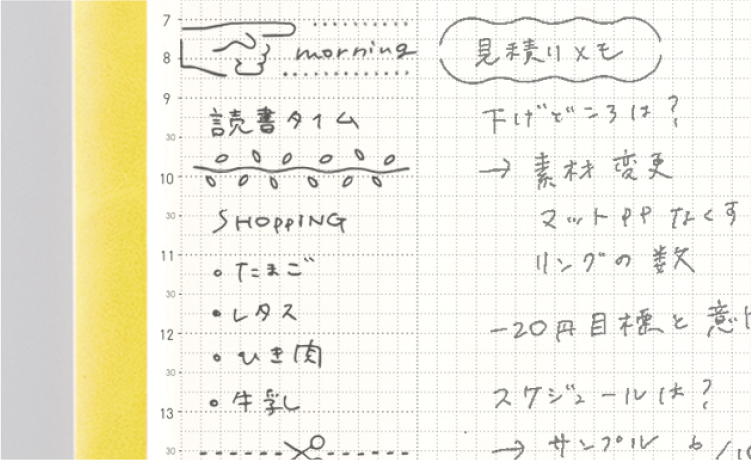 7
8 morning
9
読書タイム
30
10
30
SHOPPING
11
• たまご
30
• レタス
12
30
• ひき肉
• 牛乳
13
30
見積りメモ
下げどころは？
→ 素材変更
マットPPなくす
リングの数
-20円目標と
スケジュールは？
→ サンプル 6/